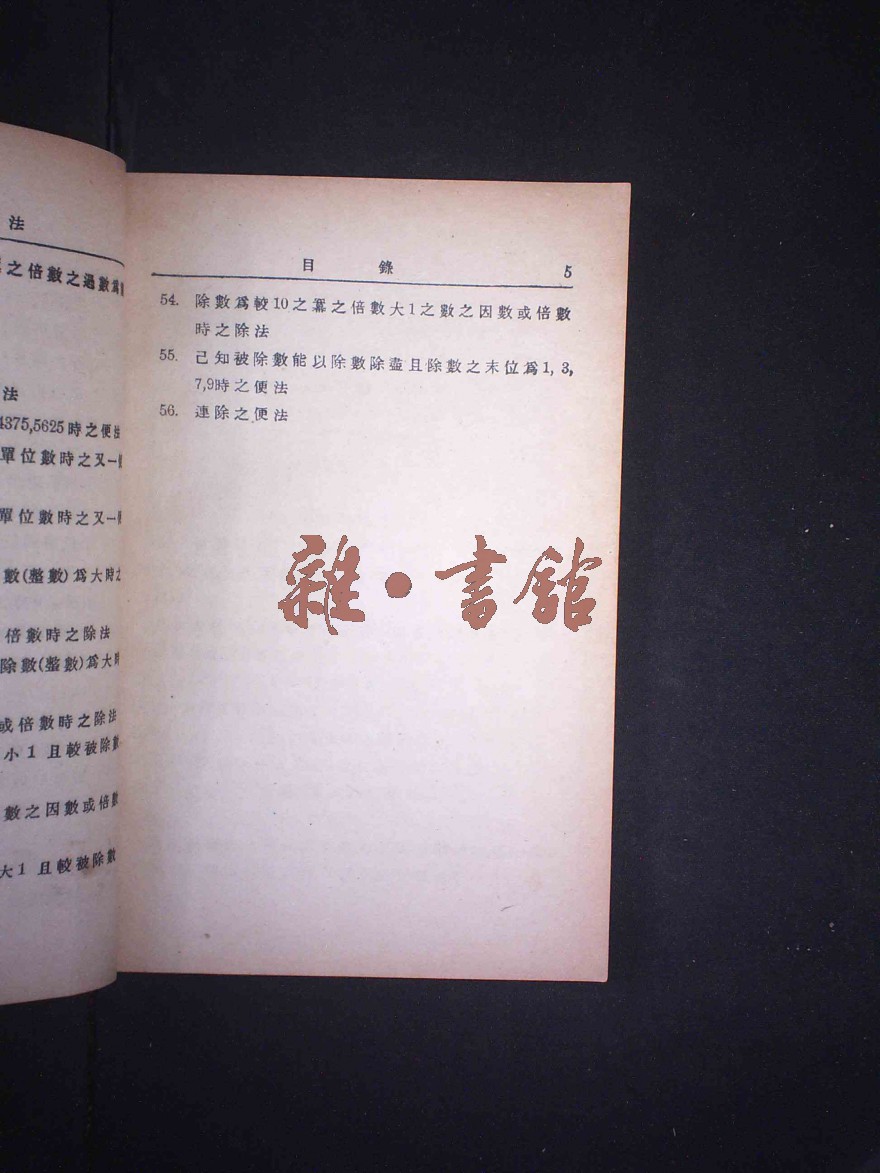 法
之倍數之過數爲
法
4375,5625時之便法
單位數時之又一
單位數時之又一
數(整數)爲大時之
倍數時之除法
除數(整數)爲大時
或倍數時之除法
小1且較被除數
數之因數或倍數
大1且較被除數
目錄 5
54. 除數爲較10之冪之倍數大1之數之因數或倍數
時之除法
55. 己知被除數能以除數除盡且除數之末位爲1,3,
7,9時之便法
56. 連除之便法
雜·書館